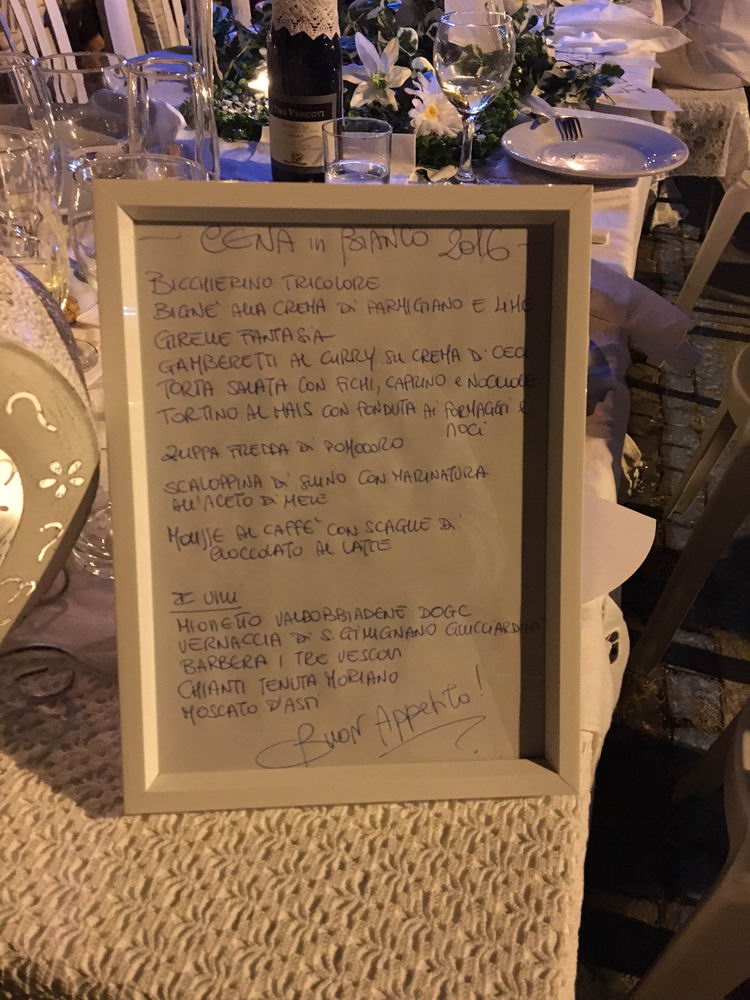 TRE VESCOVI
- CENA in BIANCO 2016 -
BICCHIERINO TRICOLORE
BIGNE' ALLA CREMA Di PARMIGIANO E LIME
GIRELLE FANTASIA
GAMBERETTI AL CURRY SU CREMA D'CECI
TORTA SALATA CON FICHI, CAPRINO e NOCCIOLE
TORTINO AL MAIS CON FONDUTA Ai FORMAGGI e
NOCi
ZUPPA FREDDA Di POMODORO
SCALOPPINA Di SUINO CON MARINATURA
ALL'ACETO Di MELE
MOUSSE AL CAFFE' CON SCAGLIE Di
CIOCCOLATO AL LATTE
I VINI
MIONETTO VALDOBBIADENE DOGC
VERNACCIA Di S. GIMIGNANO GUICCIARDINI
BARBERA I TRE VESCOVI
CHIANTI TENUTA MORIANO
MOSCATO D'ASTi
Buon Appetito!